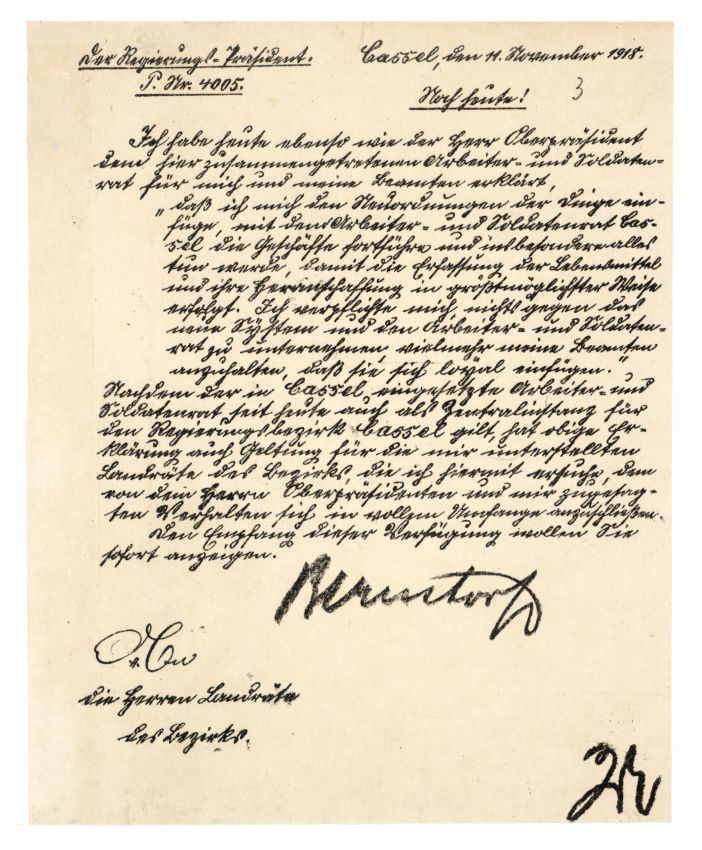 Der Regierungs-Präsident.
P. Nr. 4005.
Cassel, den 11. November 1918.
Noch heute!
3
Ich habe heute ebenso wie der Herr Oberpräsident
dem hier zusammengetretenen Arbeiter- und Soldaten-
rat für mich und meine Beamten erklärt,
„daß ich mich den Neuordnungen der Dinge ein-
füge, mit dem Arbeiter- und Soldatenrat Cas-
sel die Geschäfte fortführe und insbesondere alles
tun werde, damit die Erfassung der Lebensmittel
und ihre Heranschaffung in größtmöglichster Weise
erfolgt. Ich verpflichte mich, nichts gegen das
neue System und den Arbeiter- und Soldaten-
rat zu unternehmen, vielmehr meine Beamten
anzuhalten, daß sie sich loyal einfügen."
Nachdem der in Cassel eingesetzte Arbeiter- und
Soldatenrat seit heute auch als Zentralinstanz für
den Regierungsbezirk Cassel gilt, hat obige Er-
klärung auch Geltung für die mir unterstellten
Landräte des Bezirks, die ich hiermit ersuche, dem
von dem Herrn Oberpräsidenten und mir zugesag-
ten Verhalten sich in vollem Umfange anzuschließen.
Den Empfang dieser Verfügung wollen Sie
sofort anzeigen.
Bernstorff
An
die Herren Landräte
des Bezirks.